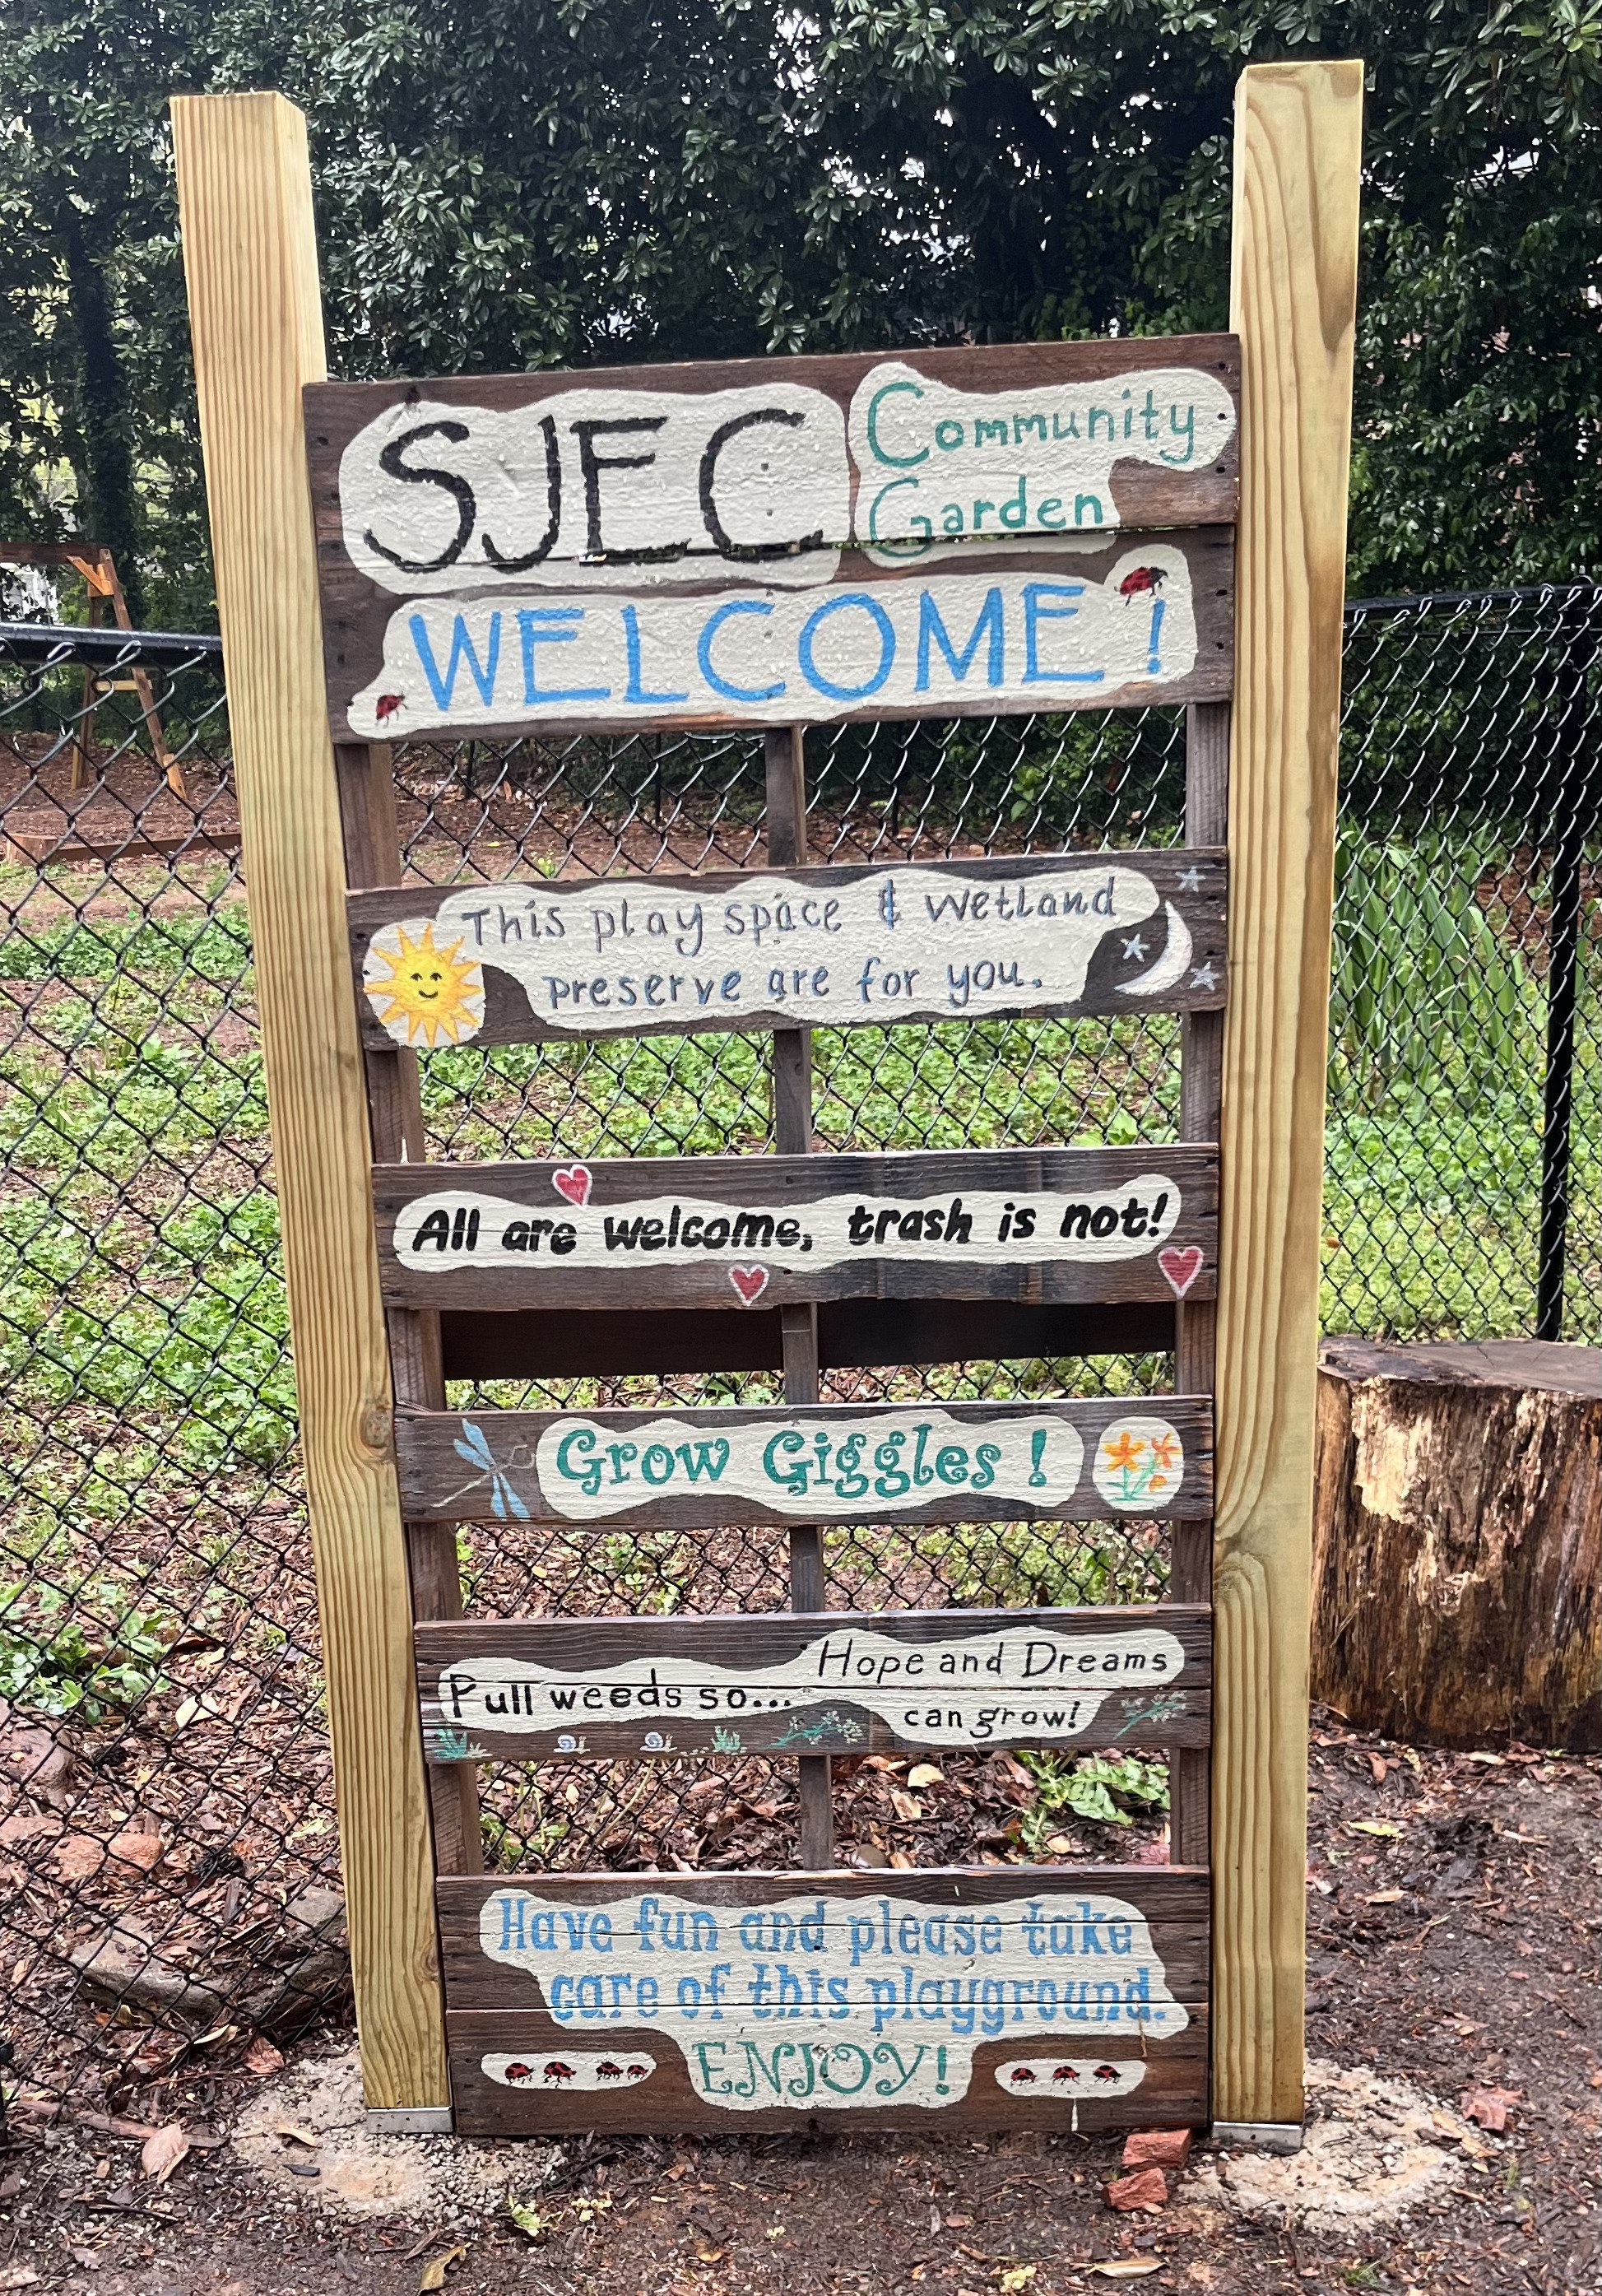 SJFC Community
Garden
WELCOME!
This play space & wetland
preserve are for you.
All are welcome, trash is not!
Grow Giggles!
Pull weeds so... Hope and Dreams
can grow!
Have fun and please take
care of this playground.
ENJOY!